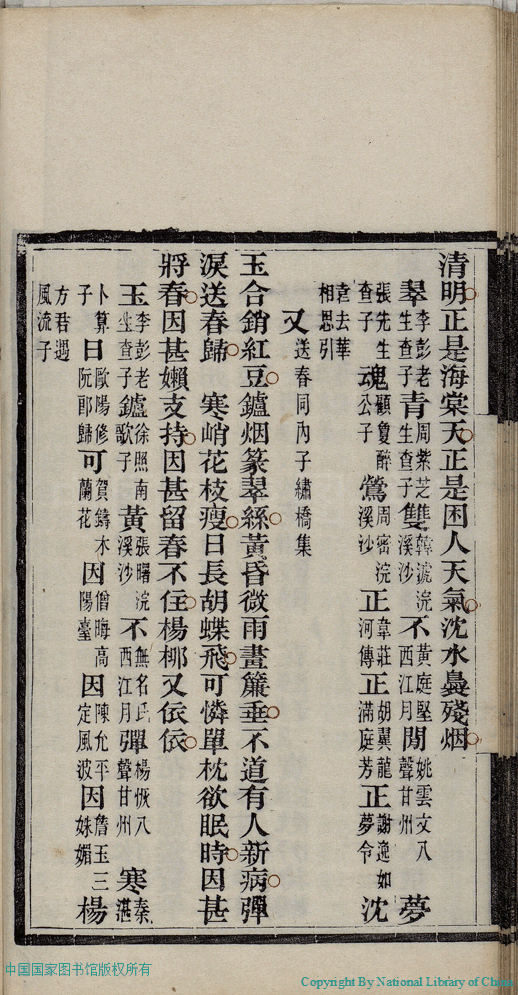 清明正是海棠天正是困人天氣沈水裊殘烟
翠李彭老生查子青周紫芝生查子雙韓淲浣溪沙不黃庭堅西江月閒姚雲文八聲甘州夢
張先生查子魂顧敻醉公子鶯周密浣溪沙正韋莊河傳正胡翼龍滿庭芳正謝逸如夢令沈
袁去華相思引
又送春同內子繡橋集
玉合銷紅豆鑪烟篆翠絲黃昏微雨畫簾垂不道有人新病彈
淚送春歸 寒峭花枝瘦日長胡蝶飛可憐單枕欲眠時因甚
將春因甚嬾支持因甚留春不住楊桺又依依
玉李彭老生查子鑪徐照南歌子黃張曙浣溪沙不無名氏西江月彈楊恢八聲甘州寒秦湛
卜算子日歐陽修阮郎歸可賀鑄木蘭花因僧晦高陽臺因陳允平定風波因詹玉三姝媚楊
方君遇風流子
中国国家图书馆版权所有
Copyright By National Library of China